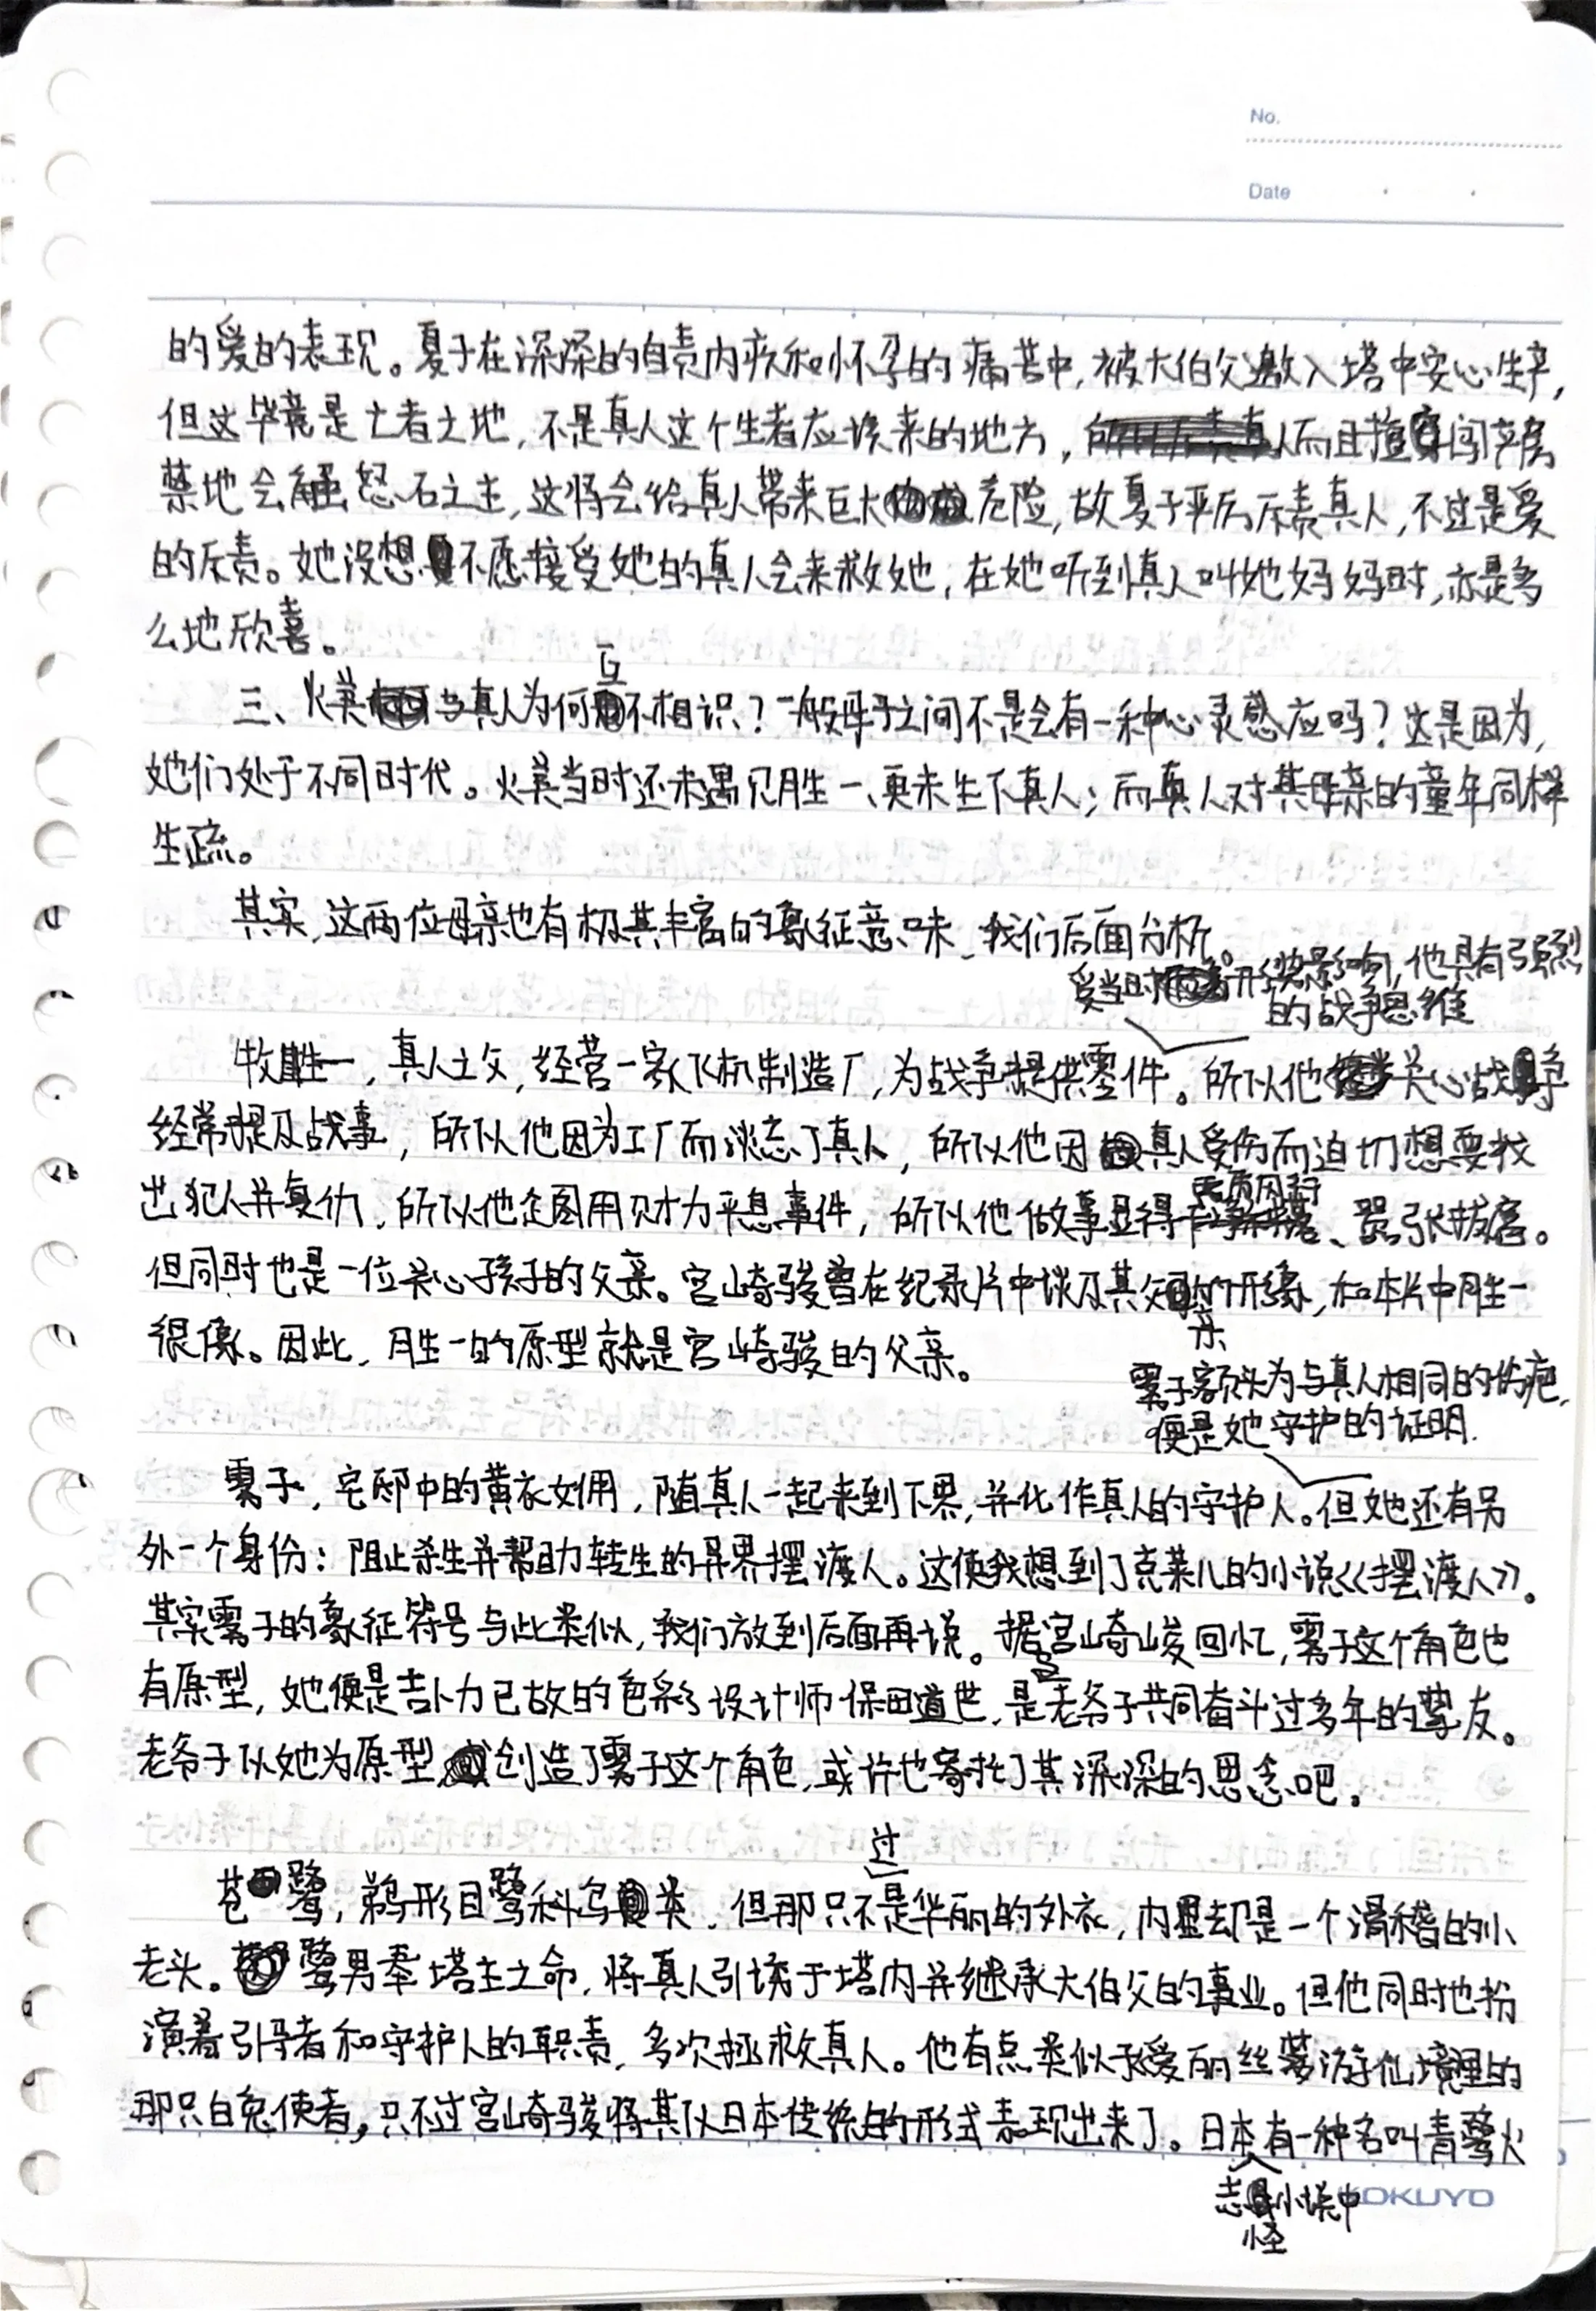 No.
Date
的爱的表现。夏子在深深的自责内疚和怀孕的痛苦中，被大伯父邀入塔中安心生产，
但这毕竟是亡者之地，不是真人这个生者应该来的地方，而且擅闯产房
禁地会触怒石之主，这将会给真人带来巨大危险，故夏子严厉斥责真人，不过是爱
的斥责。她没想不愿接受她的真人会来救她，在她听到真人叫她妈妈时，亦是多
么地欣喜。
三、火美与真人为何互不相识？一般母子之间不是会有一种心灵感应吗？这是因为，
她们处于不同时代。火美当时还未遇见胜一、更未生下真人；而真人对其母亲的童年同样
生疏。
其实，这两位母亲也有极其丰富的象征意味，我们后面分析。
受当时形势影响，他具有强烈
的战争思维
牧胜一，真人之父，经营一家飞机制造厂，为战争提供零件。所以他关心战争
经常提及战事，所以他因为工厂而淡忘了真人，所以他因真人受伤而迫切想要找
出犯人并复仇，所以他企图用财力平息事件，所以他做事显得、嚣张拔扈。
但同时也是一位关心孩子的父亲。宫崎骏曾在纪录片中谈及其父亲的形象，和本片中胜一
很像。因此，胜一的原型就是宫崎骏的父亲。
雾子额头为与真人相同的伤疤，
便是她守护的证明.
雾子，宅邸中的黄衣女佣，随真人一起来到下界，并化作真人的守护人。但她还有另
外一个身份：阻止杀生并帮助转生的异界摆渡人。这使我想到了克莱儿的小说《摆渡人》。
其实雾子的象征符号与此类似，我们放到后面再说。据宫崎骏回忆，雾子这个角色也
有原型，她便是吉卜力已故的色彩设计师保田道世，是老爷子共同奋斗过多年的挚友。
老爷子以她为原型创造了雾子这个角色，或许也寄托了其深深的思念吧。
苍鹭，鹈形目鹭科鸟类，但那只不过是华丽的外衣，内里却是一个滑稽的小
老头。鹭男奉塔主之命，将真人引诱于塔内并继承大伯父的事业。但他同时也扮
演着引导者和守护人的职责，多次拯救真人。他有点类似于爱丽丝梦游仙境里的
那只白兔使者，只不过宫崎骏将其以日本传统的形式表现出来了。日本志怪小说中有一种名叫青鹭火
KOKUYO